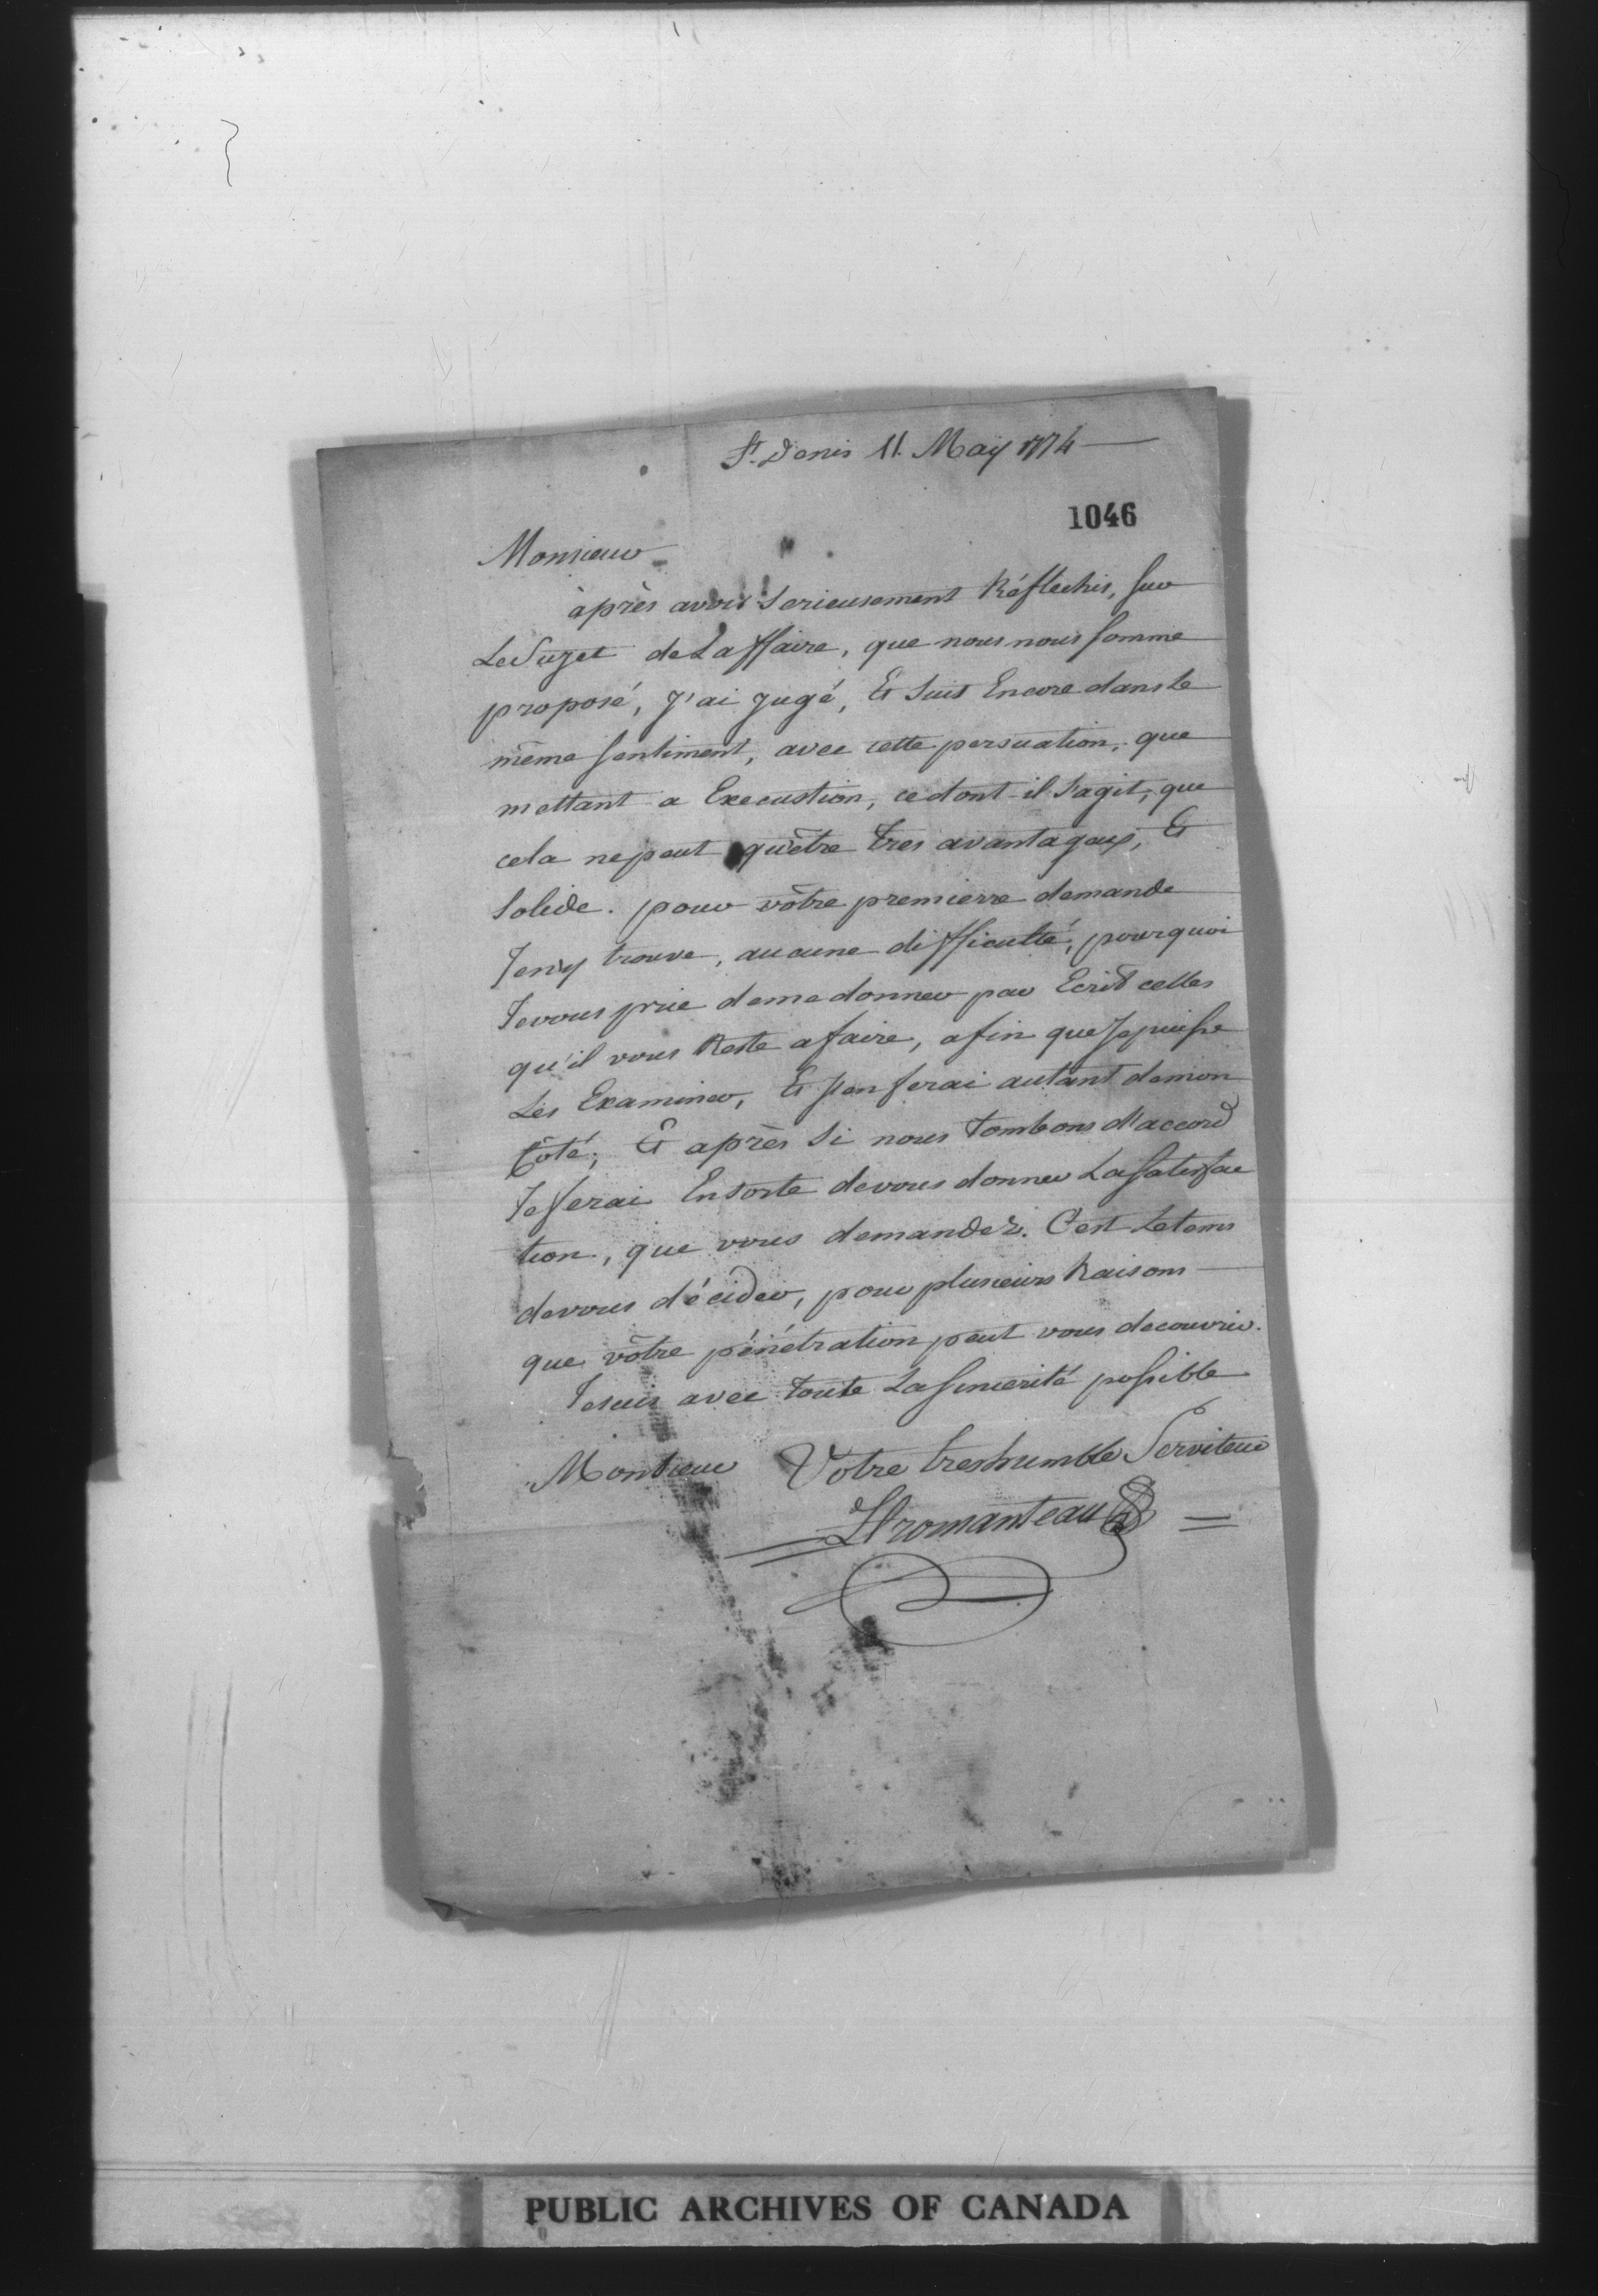 St. Denis 11. May 1774
1046
Monsieur
àprès avoir Serieusement Réflechis, sur
Le Sujet de Laffaire, que nous nous somme
proposé, J'ai Jugé, Et Suis Encore dans le
même sentiment, avec cette persuation, que
mettant a Execustion, ce dont il s'agit, que
cela ne peut qu'être tres avantageux, Et
Solide. pour vôtre premierre demande
Je n'y trouve, aucune difficulté, pourquoi
Je vous prie de me donner par Ecrit celles
qu'il vous Reste a faire, afin que Je puisse
Les Examiner, Et J'en ferai autant de mon
Côté, Et après Si nous tombons d'accord
Je ferai Ensorte de vous donner La satisfac
tion, que vous demandez. C'est Le tems
de vous décider, pour plusieurs Raisons
que vôtre pénétration peut vous decouvrir.
Je suis avec toute La sincerité possible
Monsieur Votre tres humble Serviteur
Hromanteau
PUBLIC ARCHIVES OF CANADA